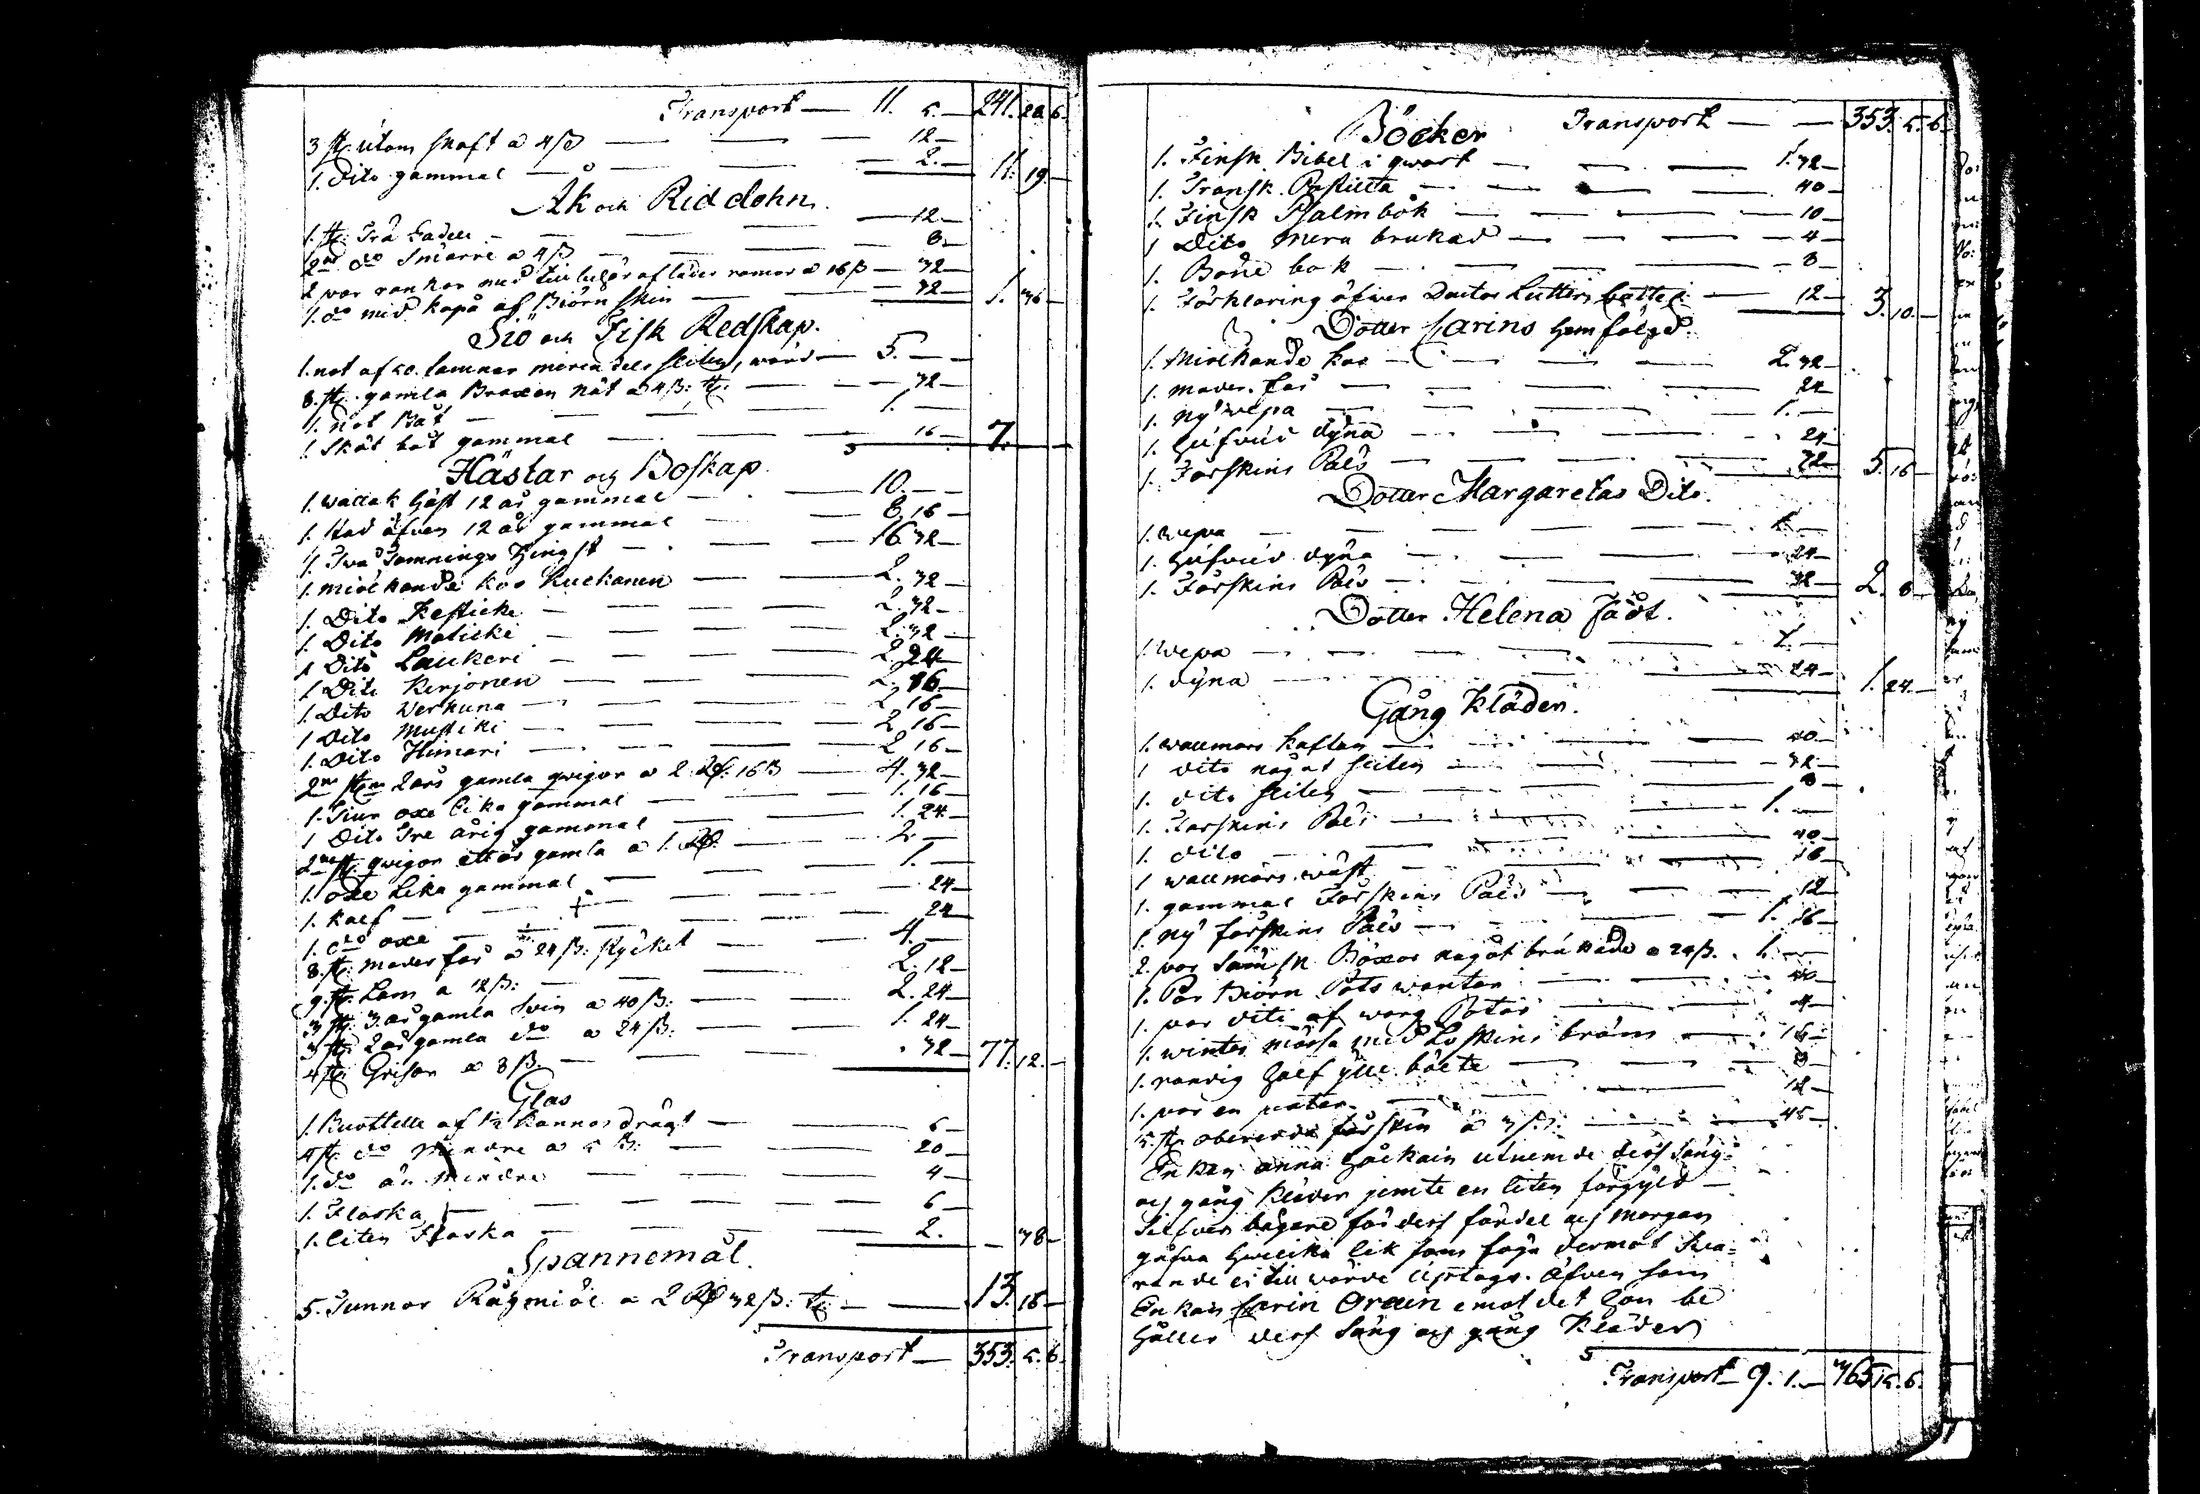 Transport — 11. 5. — 241. 20. 6.
3 st: utom skaft a 4 ß — 12 —
1. Dito gammal — 2. — 11. 19. —
Åk och Rid dohn.
1. st: Trå Sadell — 12 —
2ne do Smärre a 4 ß — 8 —
2 par rankor med tillbehör af läder remar a 16 ß — 32 —
1. do med kapa af Biörn skin — 32 — 1. 36 —
Siö och Fisk Redskap.
1. not af 50. famnar merendels sliten, värd — 5. — —
8. st: gamla Braxen nät a 4 ß: st: — 32 —
1. not Båt — 1. —
1. Sköt båt gammal — 16 — 7. — —
Hästar och Boskap.
1. wallak Häst 12 år gammal — 10. — —
1. Stod äfven 12 år gammal — 8. 16 —
1. Två Tamnings Hingst — 16. 32 —
1. miölkande koo Kuckanen — 2. 32 —
1. Dito — 2. 32 —
1. Dito Maticki — 2. 32 —
1 Dito Laukeri — 2. 24 —
1 Dito Kirjonen — 2. 16 —
1. Dito Werkuna — 2 16 —
1 Dito Mustiki — 2 16 —
1. Dito Himari — 2 16 —
2ne st:n 2 års gamla qvigor a 2 Rd: 16 ß — 4. 32 —
1. Tiur oxe lika gammal — 1. 16 —
1 Dito Tre årig gammal — 1. 24 —
2ne st: qvigor ett år gamla a 1. Rd: — 2. —
1. oxe Lika gammal — 1. —
1. kalf — 24 —
1. do oxe — 24 —
8. st: moder får a 24 ß: stycket — 4. —
9. st: Lam a 12 ß: — 2. 12 —
3 st: 3. år gamla Svin a 40 ß: — 2. 24 —
3 st: 2 år gamla do a 24 ß: — 1. 24 —
4 st: Grisar a 8 ß. — 32 — 77. 12. —
Glas
1. Buottelle af 1/2 kannas drägt — 6 —
4 st: do Mindre a 5 ß: — 20 —
1. do än Mindre — 4 —
1. Flaska — 6 —
1. liten Flaska — 2. — — 38 —
Spannemål.
5. Tunnor Rågmiöl a 2 Rd 32 ß: t: — 13. 16 —
Transport — 353. 5. 6.
Böcker Transport — — 353. 5. 6 —
1. Finsk Bibel i qwart — 1. 32 —
1. Postilla — 40 —
1. Finsk Psalmbok — 10 —
1 Dito mera brukad — 4 —
1. Bone bok — 8 —
1. Förklaring öfwer Doctor Lutters — 12 — 3. 10. —
Dotter Carins Hemfölgd.
1. Miölkande koo — 2. 32 —
1. moder får — 24 —
1. ny wepa — 1. —
1. Hufvud dyna — 24 —
1. Fårskins Päls — 32 — 5. 16 —
Dotter Margaretas Dito.
1. wepa — 1. —
1. Hufvud dyna — 24 —
1. Fårskins Päls — 32 — 2. 8 —
Dotter Helena fådt.
1. wepa — 1. —
1. dyna — 24 — 1. 24. —
Gång kläder.
1. wallmars kaftan — 40 —
1 dito något sliten — 32 —
1. dito sliten — 8 —
1. Fårskins Päls — 1. —
1. dito — 40 —
1 wallmars wäst — 16 —
1. gammal Fårskins Päls — 12 —
1. ny fårskins Päls — 1. 16 —
2. par Sämsk Böxor något brukade a 24 ß. — 1. —
1. Par Biörn Pots wantar — 40 —
1. par dito af warg Potar — 4 —
1. winter mössa med skins bräm — 16 —
1. randig Half ylle bälte — 8 —
1. par — 12 —
5. st: oberedda fårskin a 9 ß: — 45 —
Enkan Anna utnemde dess Säng
och gång kläder jemte en liten förgyld
Silfver bägare för dess fördel och morgan
gåfva Hwilcka lik som
ei till wärde uptogs. Äfven som
Enkan Carin emot det Hon be
Håller dess Säng och gång kläder
Transport — 9. 1. — 365. 15. 6.